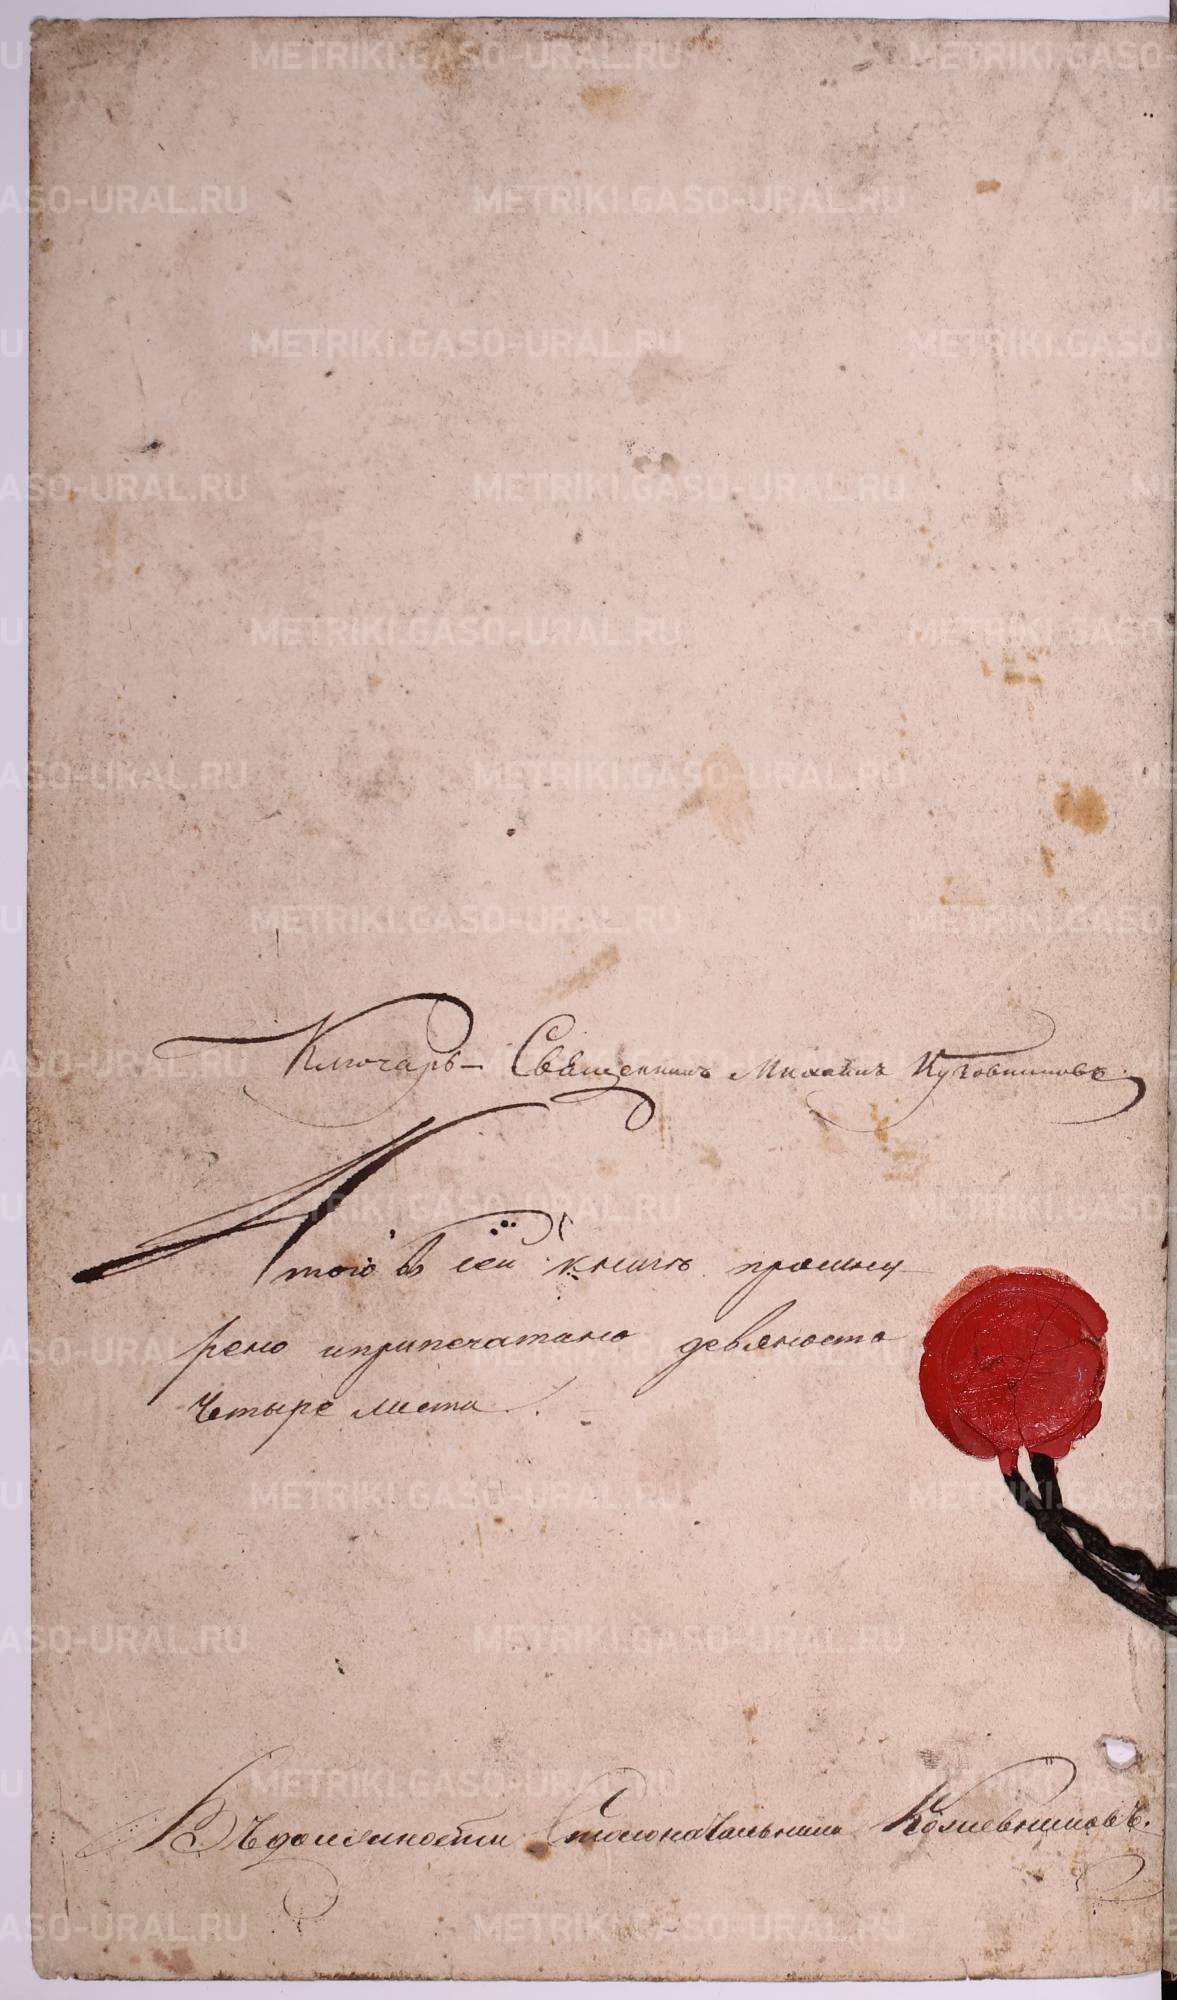 Ключарь Священникъ Михаилъ Кутовщиковъ
Итого в сей книгѣ прошну
рено и припечатано девяносто
Четыре листа.
Въ должности Столоначальника Кожевниковъ.
METRIKI.GASO-URAL.RU